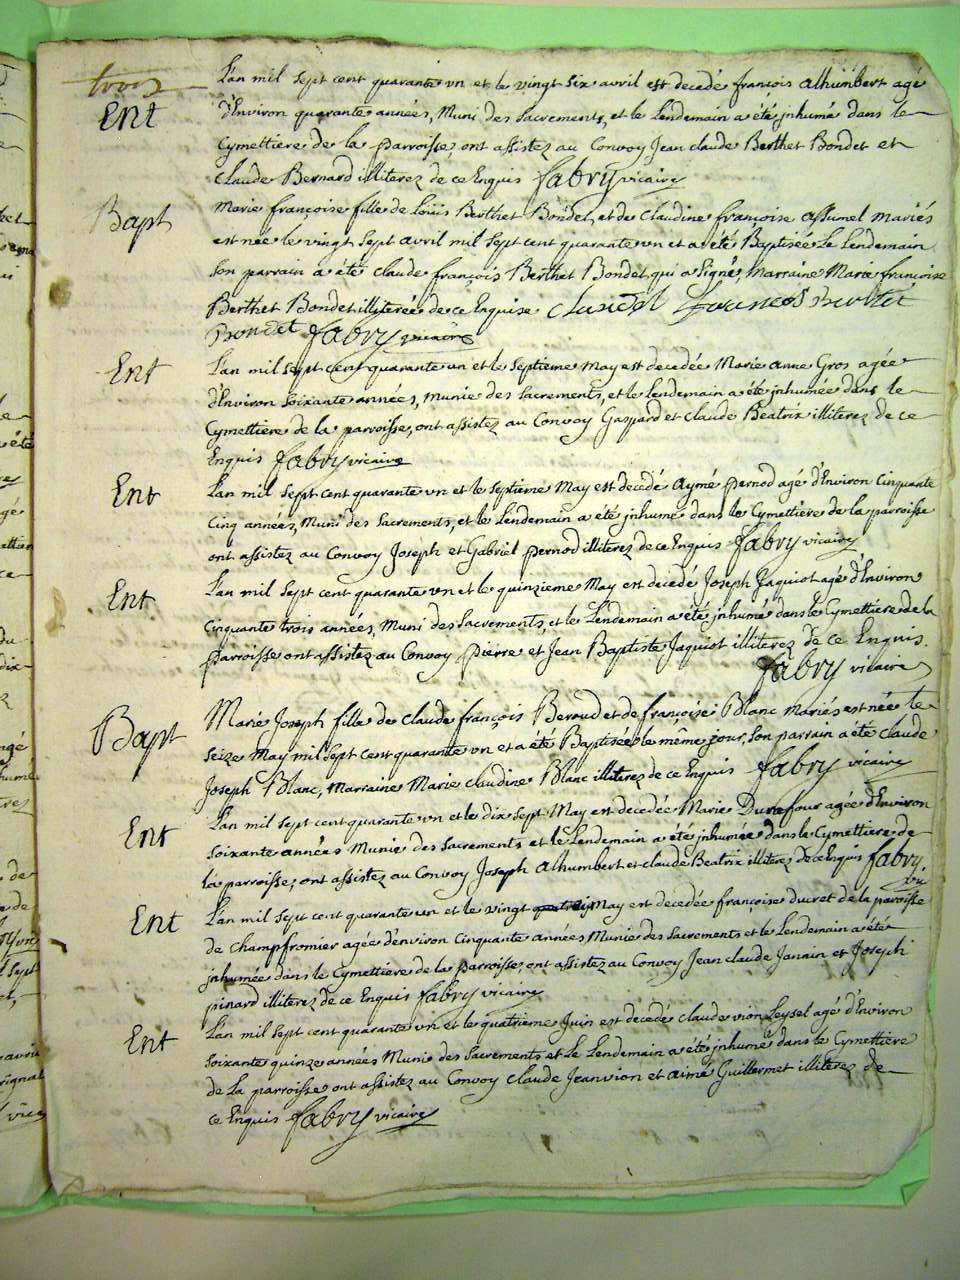 trois
Ent
L'an mil sept cent quarante un et le vingt six avril est decedé françois alhumbert agé
d'Environ quarante années, Muni des Sacrements, et le Lendemain a été jnhumé dans le
Cymettiere de la parroisse, ont assistez au Convoy Jean claude Berthet Bondet et
claude Bernard illiterez de ce Enquis fabry vicaire
Bapt
Marie françoise fille de loüis Berthet Bondet, et de Claudine françoise assumel Mariés
est née le vingt sept avril mil sept cent quarante un et a été Baptisée Le Lendemain
Son parrain a été claude françois Berthet Bondet qui a signé, Marraine Marie françoise
Berthet Bondet illiterée de ce Enquise claude francois Bertet
Bondet fabry vicaire
Ent
L'an mil sept cent quarante un et le septieme May est decedée Marie anne Gros agée
d'Environ soixante années, Munie des Sacrements, et le Lendemain a été jnhumée dans le
Cymettiere de la parroisse, ont assistez au Convoy Gaspard et claude Beatrix illiterez de ce
Enquis fabry vicaire
Ent
L'an mil sept cent quarante un et le septieme May est décedé Aymé pernod agé d'Environ Cinquante
Cinq années, Muni des Sacrements, et le Lendemain a été jnhumé dans le Cymettiere de la parroisse
ont assistez au Convoy Joseph et Gabriel pernod illiterez de ce Enquis fabry vicaire
Ent
L'an mil sept cent quarante un et le quinzieme May est decedé Joseph Jaquiot agé d'Environ
Cinquante trois années, Muni des Sacrements, et le Lendemain a été jnhumé dans le Cymettiere de la
parroisse ont assistez au Convoy pierre et Jean Baptiste Jaquiot illiterez de ce Enquis.
fabry vicaire
Bapt
Marie Joseph fille de Claude françois Beroud et de françoise Blanc Mariés est née le
seize May mil sept cent quarante un et a été Baptisée le même jour, son parrain a été claude
Joseph Blanc, Marraine Marie claudine Blanc illiterez de ce Enquis fabry vicaire
Ent
L'an mil sept cent quarante un et le dix sept May est decedée Marie Durafour agée d'Environ
soixante années Munie des Sacrements et le Lendemain a été jnhumée dans le Cymettiere de
la parroisse, ont assistez au Convoy Joseph alhumbert et claude Beatrix illiterez de ce Enquis fabry
vic
Ent
L'an mil sept cent quarante un et le vingt May est decedée françoise ducret de la paroisse
de Champfromier agée d'environ Cinquante années Munie des Sacrements et le Lendemain a été
jnhumée dans le Cymettiere de la parroisse, ont assistez au Convoy Jean claude Jannin et Joseph
pinard illiterez de ce Enquis fabry vicaire
Ent
L'an mil sept cent quarante un et le quatrieme Juin est decedé claude vion Leysel agé d'Environ
soixante quinze années Muni des Sacrements et le Lendemain a été jnhumé dans le Cymettiere
de La parroisse ont assistez au Convoy claude Jeanvion et aimé Guillermet illiterez de
ce Enquis fabry vicaire